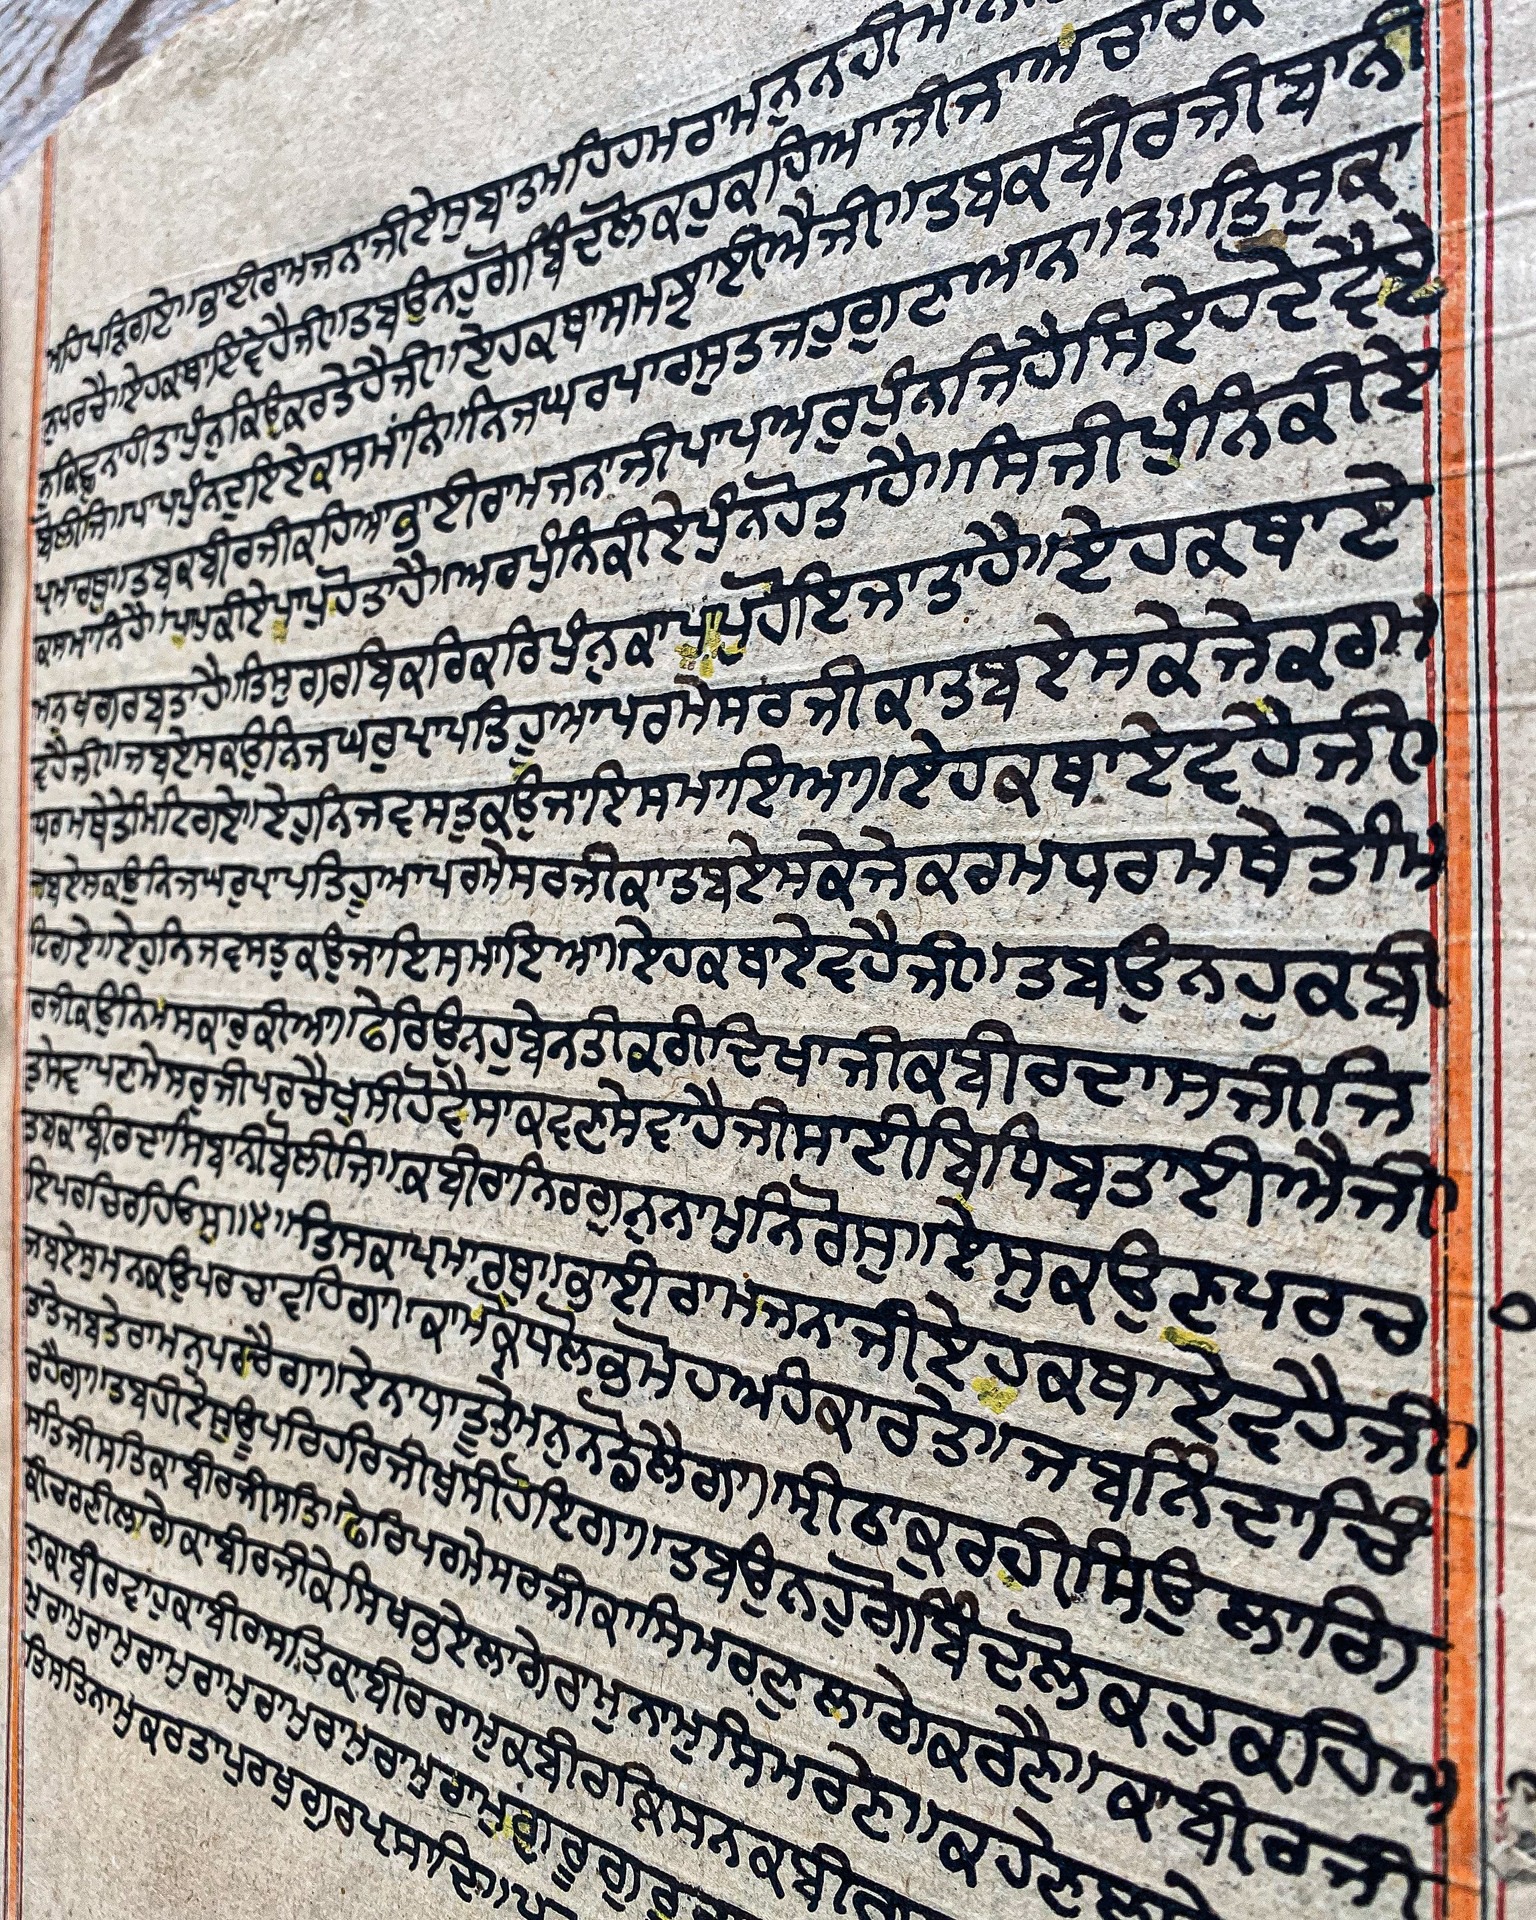 ਮਹਿਪੜਿਗਏ॥ਭਾਈਰਾਮਜਨਾਜੀਏਸੁਬਾਤਮਹਿਹਮਰਾਮਨੁਨਹੀਮਾਨ
ਨੁਪਰਚੈ॥ਏਹਕਥਾਇਵੈਹੈਜੀ॥ਤਬਉਨਹੁਗੋਬਿੰਦਲੋਕਹੁਕਹਿਆਜੀਜਾਅਚਾਰਕ
ਨਕਿਛੁਨਾਹੀਤਾਪੁੰਨੁਕਿਉਕਰਤੇਹੈਜੀ॥ਏਹਕਥਾਸਮਝਾਈਐਜੀ॥ਤਬਕਬੀਰਜੀਬਾਨੀ
ਬੋਲੀਜਿ॥ਪਾਪਪੁੰਨਦੁਇਏਕਸਮਾਨਿ॥ਨਿਜਘਰਪਾਰਸੁਤਜਹੁਗੁਣਆਨ॥੩॥ਤਿਸੁਕਾ
ਪ੍ਰਮਾਰਥੁ॥ਤਬਕਬੀਰਜੀਕਹਿਆਭਾਈਰਾਮਜਨਾਜੀਪਾਪਅਰੁਪੁੰਨਜਿਹੈਸਿਏਹਦੋਵੈਏ
ਕਸਮਾਨਿਹੈ॥ਪਾਪੁਕੀਏਪਾਪੁਹੋਤਾਹੈ॥ਅਰਪੁੰਨਿਕੀਏਪੁੰਨਹੋਤਾਹੈ॥ਸਿਜੀਪੁੰਨਿਕੀਏ
ਮਨੁਖਗਰਬਤਾਹੈ॥ਤਿਸੁਗਰਬਿਕਰਿਕਰਿਪੁੰਨੁਕਾਪਾਪੁਹੋਇਜਾਤਾਹੈ॥ਏਹਕਥਾਏ
ਵਹੈਜੀ॥ਜਬਏਸਕਉਨਿਜਘਰੁਪ੍ਰਾਪਤਿਹੁਆਪਰਮੇਸਰਜੀਕਾਤਬਏਸਕੇਜੇਕਰਮ
ਧਰਮਥੇਤੇਮਿਟਿਗਏ॥ਏਹੁਨਿਜਵਸਤੁਕਉਜਾਇਸਮਾਇਆ॥ਏਹਕਥਾਏਵਹੈਜੀ
ਜਬਏਸਕਉਨਿਜਘਰੁਪ੍ਰਾਪਤਿਹੁਆਪਰਮੇਸਰਜੀਕਾਤਬਏਸਕੇਜੇਕਰਮਧਰਮਥੇਤੇਮਿ
ਟਿਗਏ॥ਏਹੁਨਿਜਵਸਤੁਕਉਜਾਇਸਮਾਇਆ॥ਏਹਕਥਾਏਵਹੈਜੀ॥ਤਬਉਨਹੁਕਬੀ
ਰਜੀਕਉਨਿਮਸਕਾਰੁਕੀਆ॥ਫੇਰਿਉਨਹੁਬੇਨਤੀਕਰੀਦਿਖਾਜੀਕਬੀਰਦਾਸਜੀਜਿ
ਤੁਸੇਵਾਪਣਮੇਸਰੁਜੀਪਰਚੈਖੁਸੀਹੋਵੈਸਾਕਵਣਸੇਵਾਹੈਜੀਸਾਈਬਿਧਿਬਤਾਈਐਜੀ
ਤਬਕਾਬੀਰਦਾਸਿਬਾਨੀਬੋਲੀਜਿ॥ਕਬੀਰਾਨਿਰਗੁਨਨਾਮੁਨਿਰੋਸੁ॥ਏਸੁਕਉਣਪਰਚ
ਇਪਰਚਿਰਹਿਓਸੁ॥੪॥ਤਿਸਕਾਪ੍ਰਮਾਰਥੁ॥ਭਾਈਰਾਮਜਨਾਜੀਏਹੁਕਥਾਏਵਹੈਜੀ
ਜਬਏਸੁਮਨਕਉਪਰਚਾਵਹਿਗਾ॥ਕਾਮਕ੍ਰੋਧਲੋਭਮੋਹਅਹੰਕਾਰਤੇ॥ਜਬਨਿੰਦਾਚਿੰ
ਤਾਤੇਜਬਤੇਰਾਮਨੁਪਰਚੈਗਾ॥ਏਨਾਧਾਤੂਤੇਮਨੁਨਡੋਲੈਗਾ॥ਸੀਠਾਕੁਰਹੀਸਿਉਲਾਗਿ
ਰਹੈਗਾ॥ਤਬਹੀਏਸੁਉਪਰਿਹਰਿਜੀਖੁਸੀਹੋਇਗਾ॥ਤਬਉਨਹੁਗੋਬਿੰਦਲੋਕਹੁਕਹਿਆ
ਸਤਿਜੀਸਤਿਕਾਬੀਰਜੀਸਤਿ॥ਫੇਰਿਪਰਮੇਸਰਜੀਕਾਸਿਮਰਣੁਲਾਗੇਕਰਣੈ॥ਕਾਬੀਰਜੀ
ਕੀਚਰਣੀਲਾਗੇਕਾਬੀਰਜੀਕੇਸਿਖਭਏਲਾਗੇਰਾਮੁਨਾਮੁਸਿਮਰੇਣ॥ਕਹੇਣਲਾਗੇ
ਨੁਕਾਬੀਰਵਾਹੁਕਾਬੀਰਸਤਿਕਾਬੀਰਰਾਮੁਕਬੀਰਕ੍ਰਿਸਨਕਬੀਰ
ਮੁਰਾਮੁਰਾਮੁਰਾਮੁਰਾਮੁਰਾਮੁਰਾਮੁਰਾਮੁਰਾਮੁਗੁਰੂਗੁਰੂ
ਤਿਸਤਿਨਾਮੁਕਰਤਾਪੁਰਖੁਗੁਰਪ੍ਰਸਾਦਿ॥